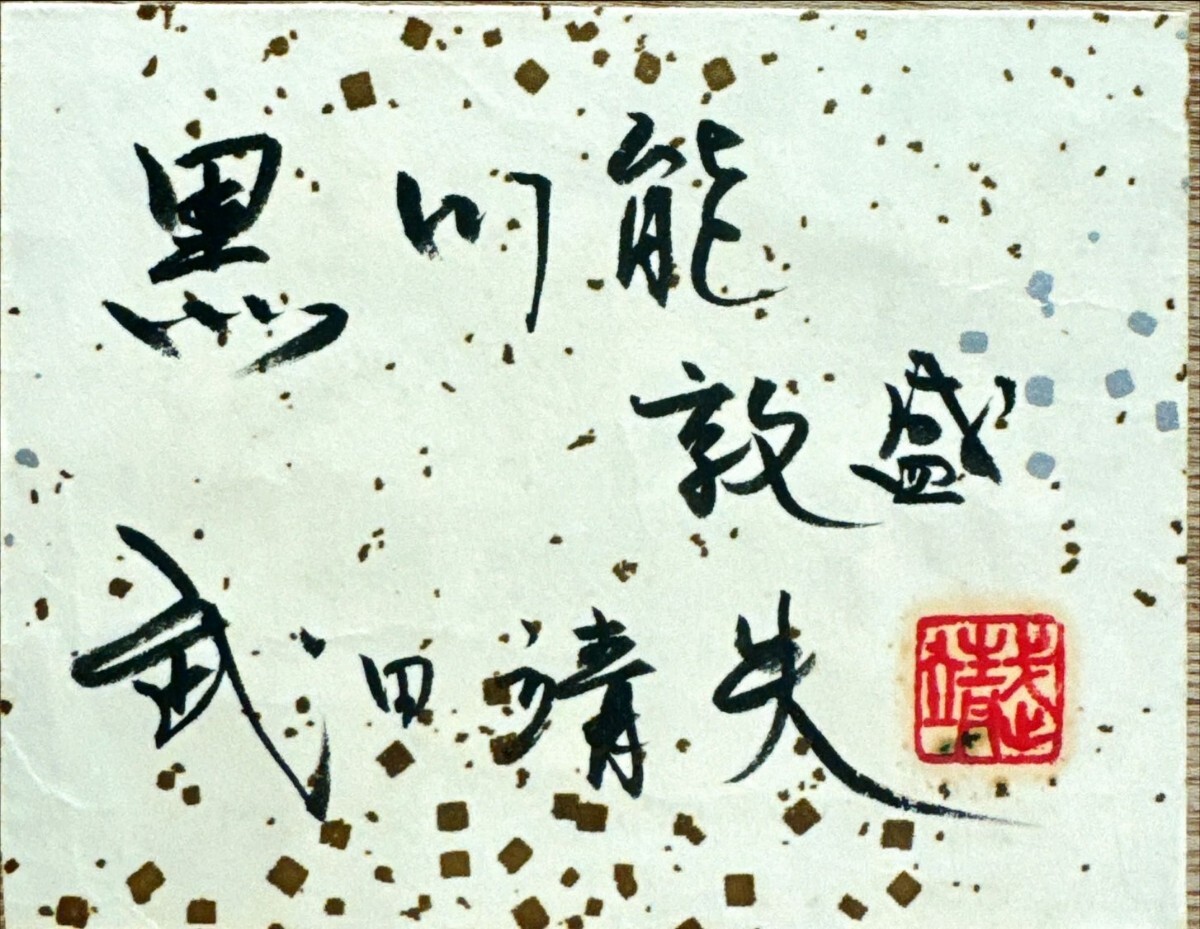 黒川能
敦盛
武田靖夫